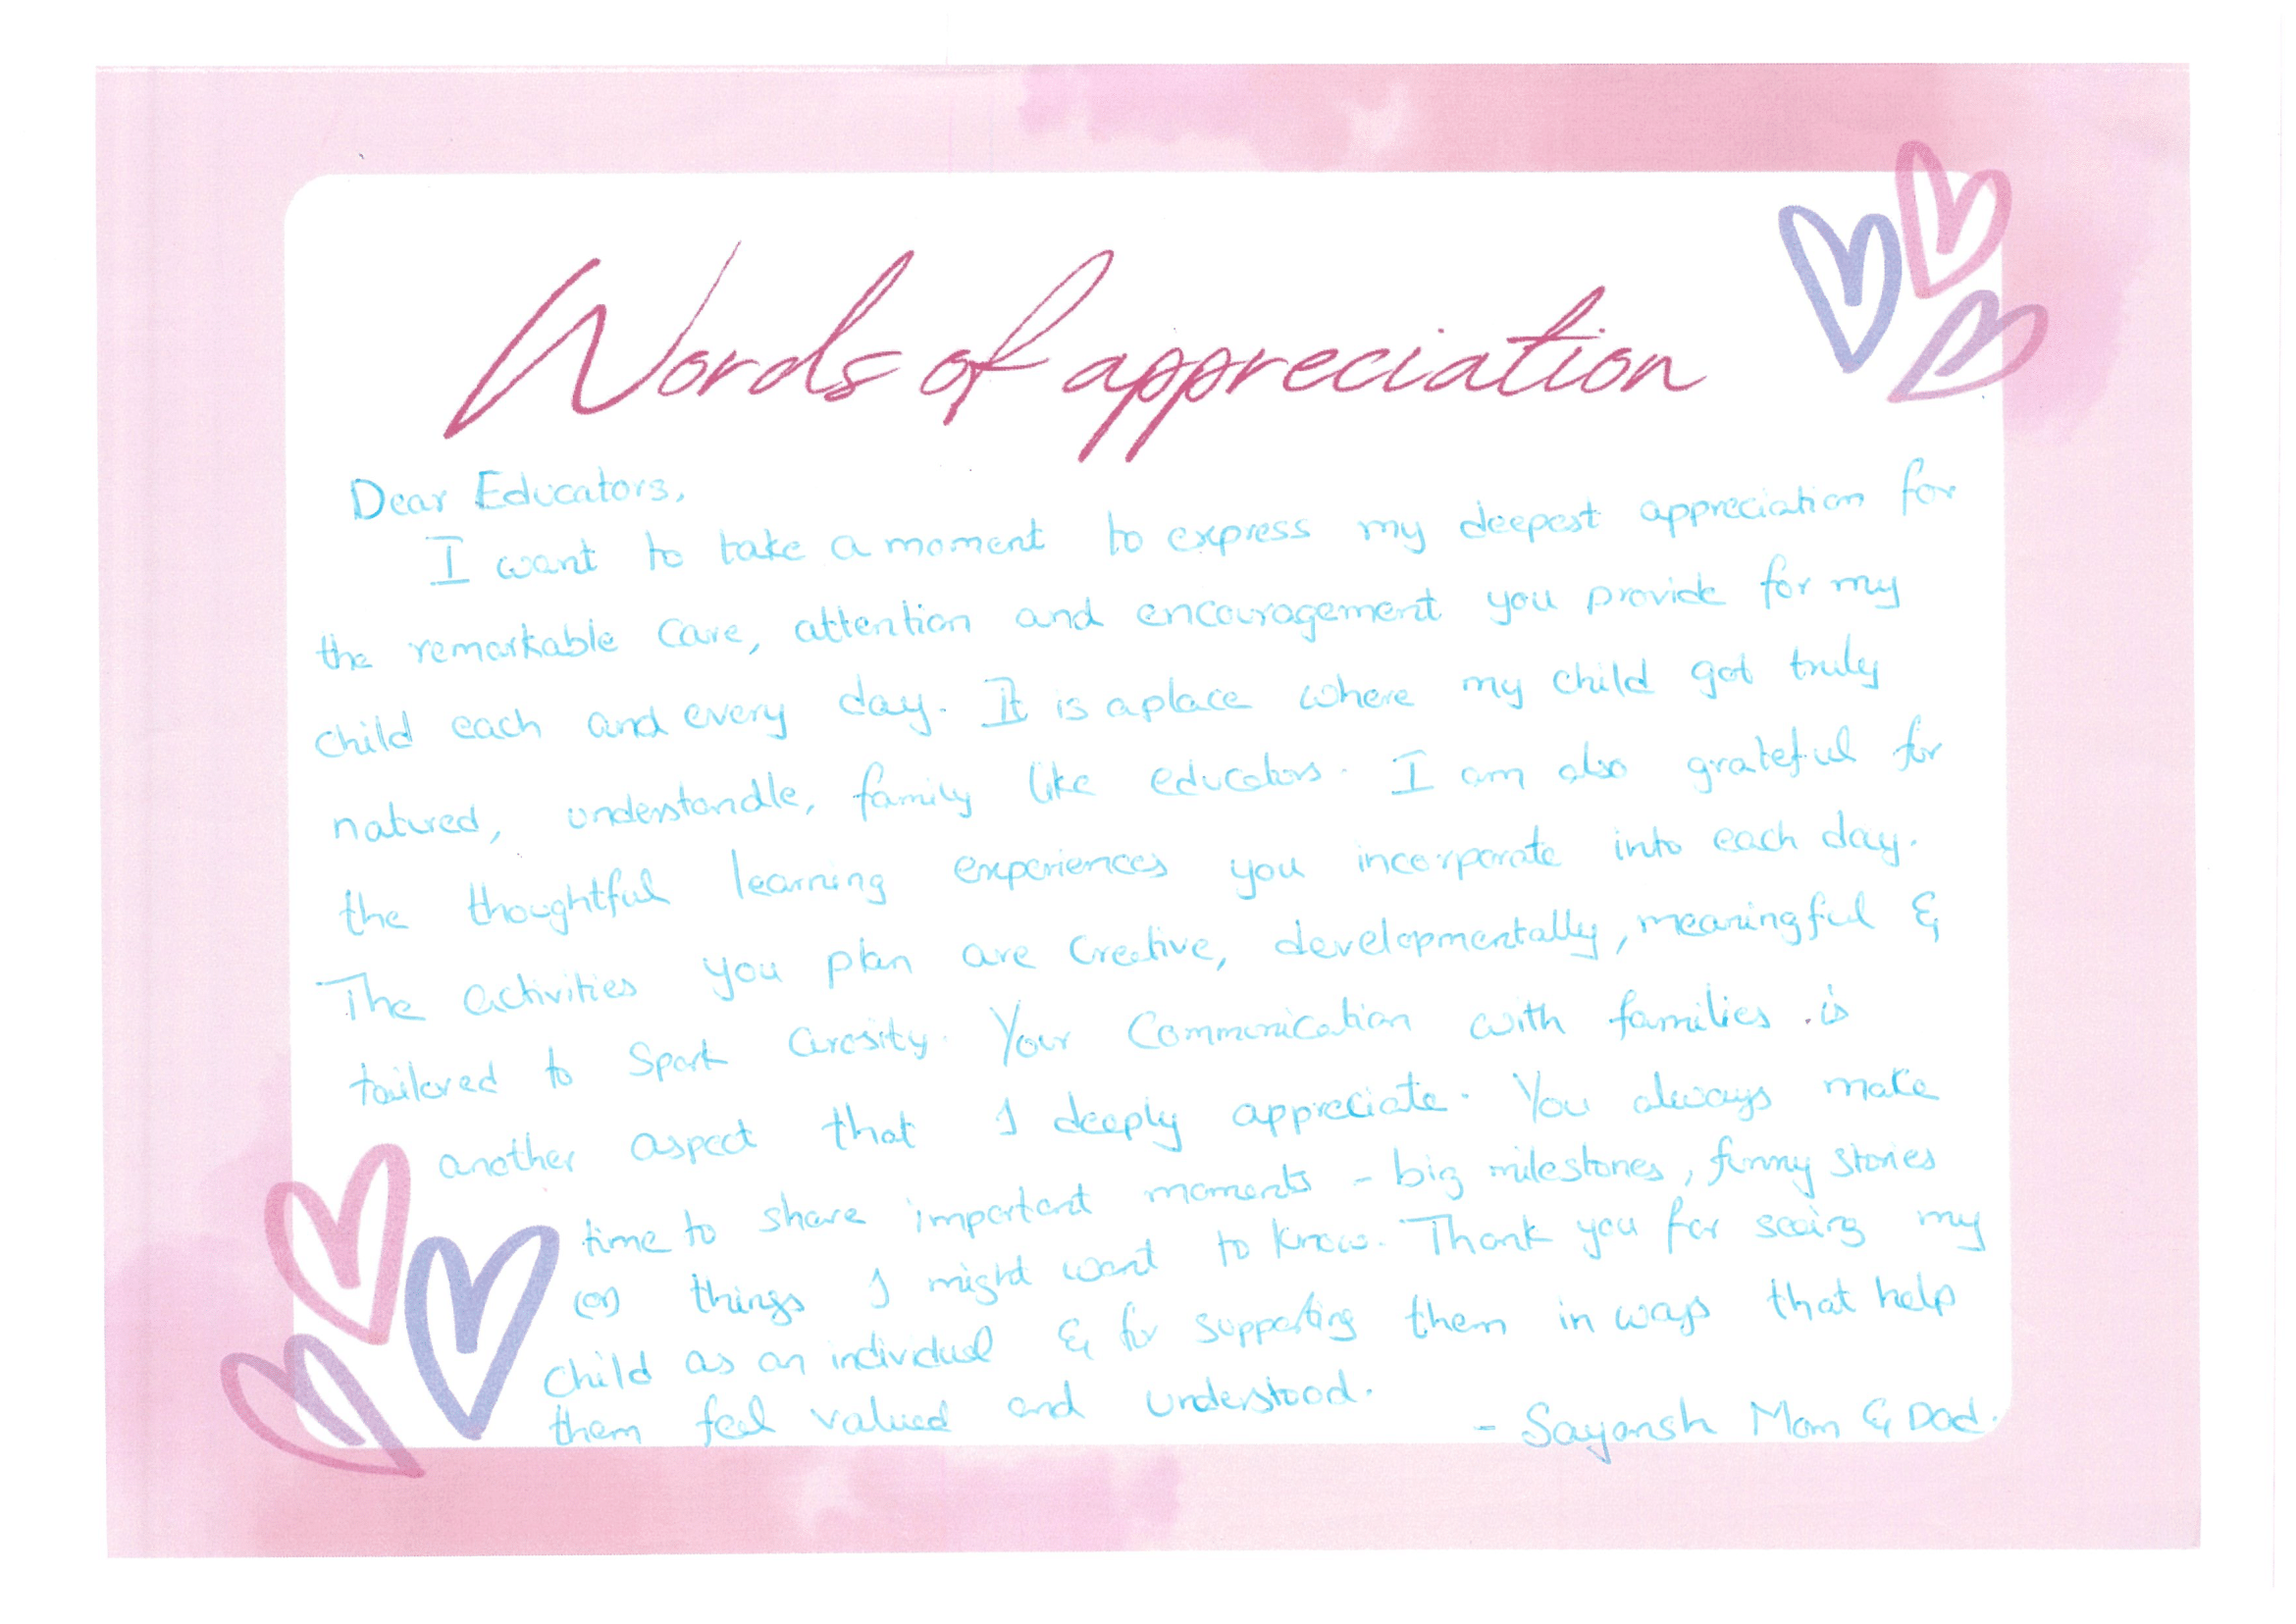 Words of appreciation
Dear Educators,
I want to take a moment to express my deepest appreciation for
the remarkable care, attention and encouragement you provide for my
child each and every day. It is a place where my child got truly
natured, understandle, family like educators. I am also grateful for
the thoughtful learning experiences you incorporate into each day.
The activities you plan are creative, developmentally, meaningful &
tailored to spark curosity. Your Communication with families is
another aspect that I deeply appreciate. You always make
time to share important moments - big milestones, funny stories
(or) things I might want to know. Thank you for seeing my
child as an individual & for supporting them in ways that help
them feel valued and understood.
- Sayansh Mom & Dad.